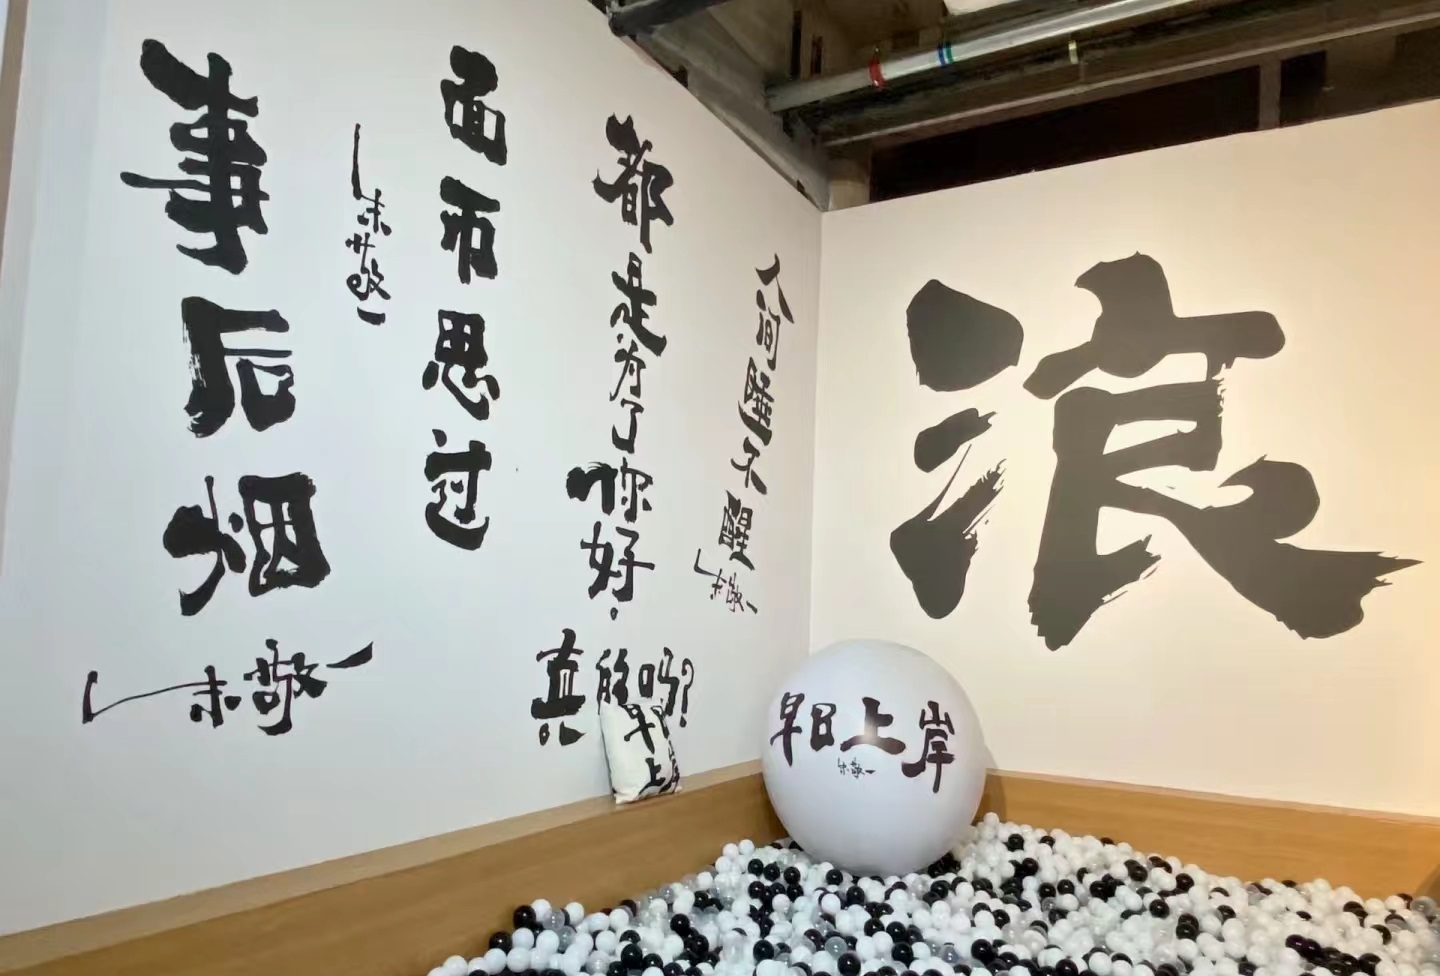 事后烟
朱敬一
面币思过
朱敬一
都是为了你好。
真的吗?
人间睡不醒
朱敬一
浪
早日上岸
朱敬一
早
上岸